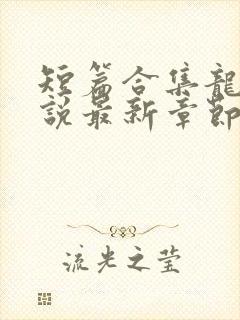 短篇合集龍
說最新章節
流光之莹